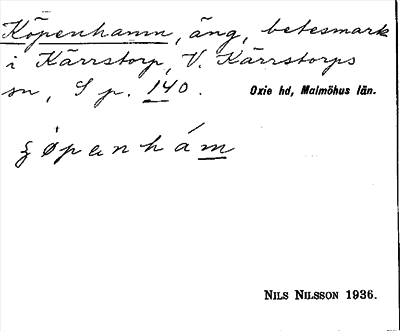 Köpenhamn, äng, betesmark
i Kärrstorp, V. Kärrstorps
sn, S p. 140. Oxie hd, Malmöhus län.
NILS NILSSON 1936.